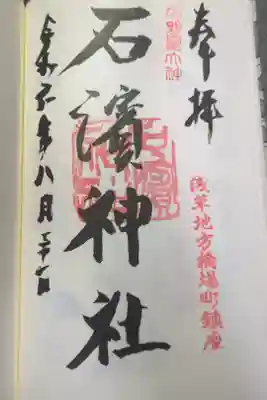 奉拝
浅草地方橋場町鎮座
石濱神社
令和元年八月